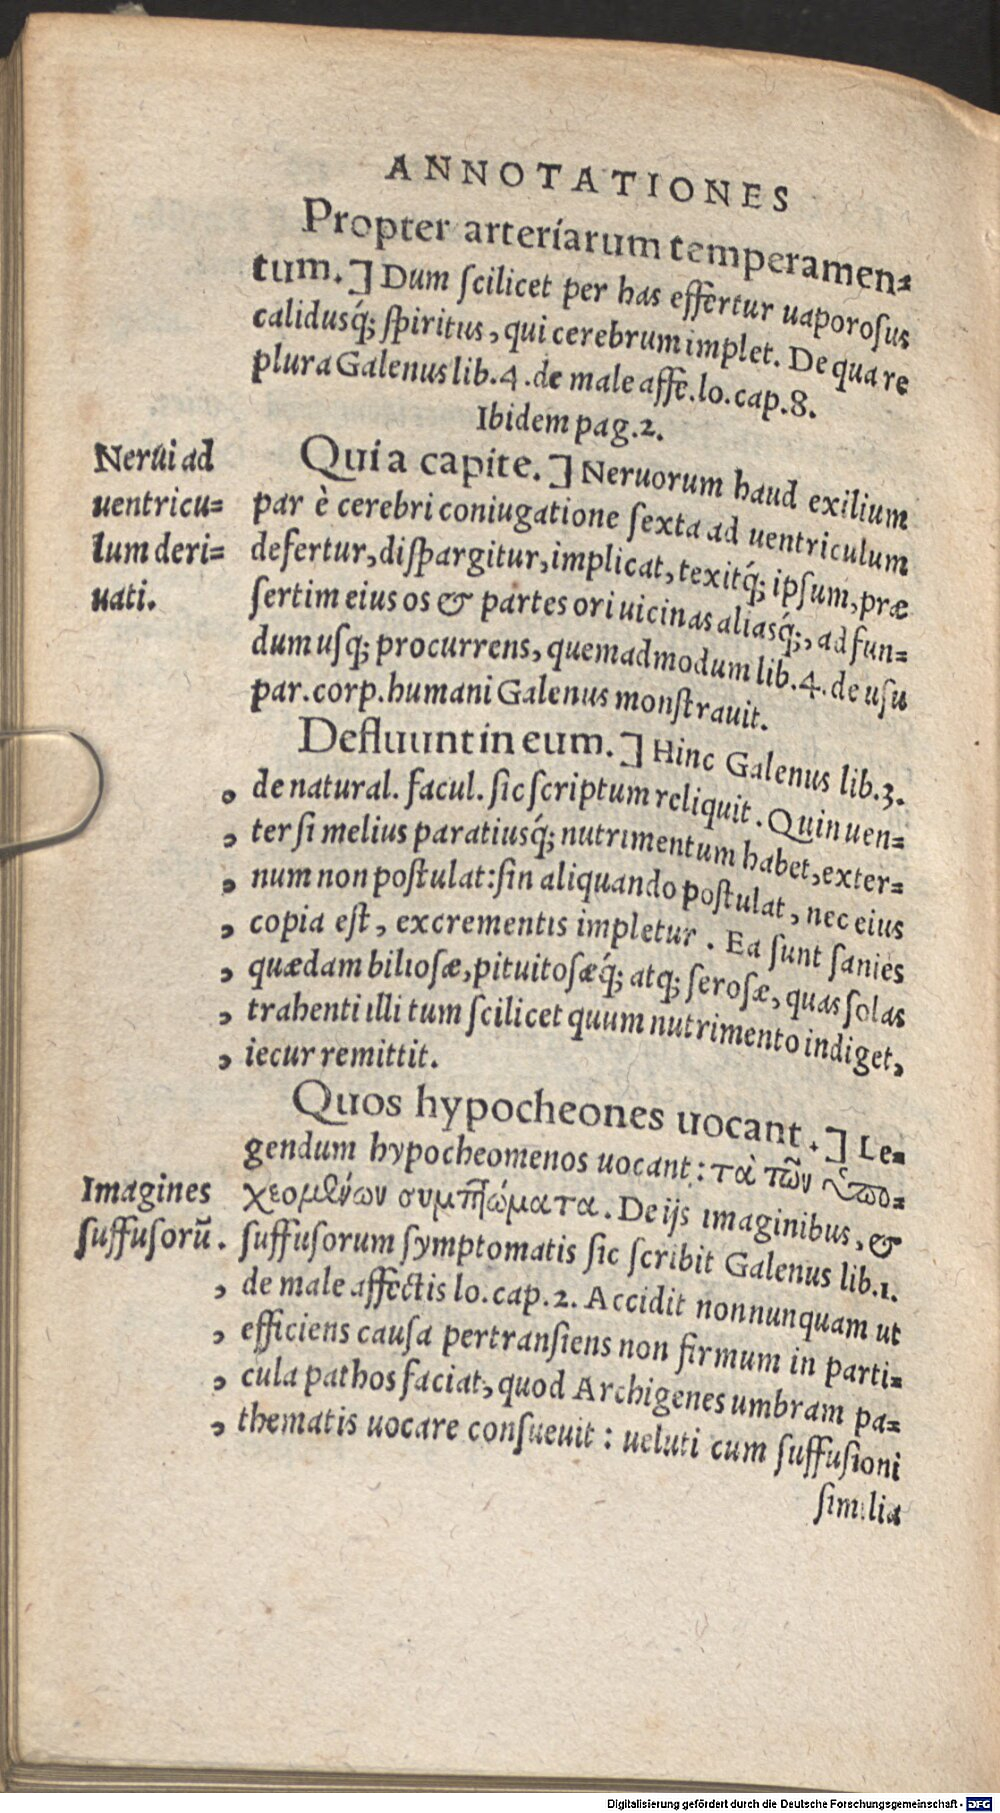 ANNOTATIONES
Propter arteriarum temperamen=
tum.] Dum ſcilicet per has effertur uaporoſus
calidusq́; ſpiritus, qui cerebrum implet. De qua re
plura Galenus lib.4.de male affe.lo.cap.8.
Ibidem pag.2.
Nerui ad
uentricu=
lum deri=
uati.
Qui a capite.] Neruorum haud exilium
par è cerebri coniugatione ſexta ad uentriculum
defertur, diſpargitur, implicat, texitq́; ipſum, præ
ſertim eius os & partes ori uicinas aliasq́;, ad fun=
dum uſq; procurrens, quemadmodum lib.4.de uſu
par.corp.humani Galenus monſtrauit.
Defluunt in eum.] Hinc Galenus lib.3.
de natural. facul. ſic ſcriptum reliquit. Quin uen=
, ter ſi melius paratiusq́; nutrimentum habet, exter=
, num non poſtulat: ſin aliquando poſtulat, nec eius
, copia eſt, excrementis impletur. Ea ſunt ſanies
, quædam bilioſæ, pituitoſæq́; atq; ſeroſæ, quas ſolas
, trahenti illi tum ſcilicet quum nutrimento indiget,
, iecur remittit.
Quos hypocheones uocant.] Le=
gendum hypocheomenos uocant: τὰ τῶν ὑπο=
χεομένων συμπτώματα. De ijs imaginibus, &
Imagines
ſuffuſorũ.
ſuffuſorum ſymptomatis ſic ſcribit Galenus lib.1.
, de male affectis lo.cap.2. Accidit nonnunquam ut
, efficiens cauſa pertranſiens non firmum in parti=
, cula pathos faciat, quod Archigenes umbram pa=
, thematis uocare conſueuit: ueluti cum ſuffuſioni
ſimilia
Digitalisierung gefördert durch die Deutsche Forschungsgemeinschaft - DFG